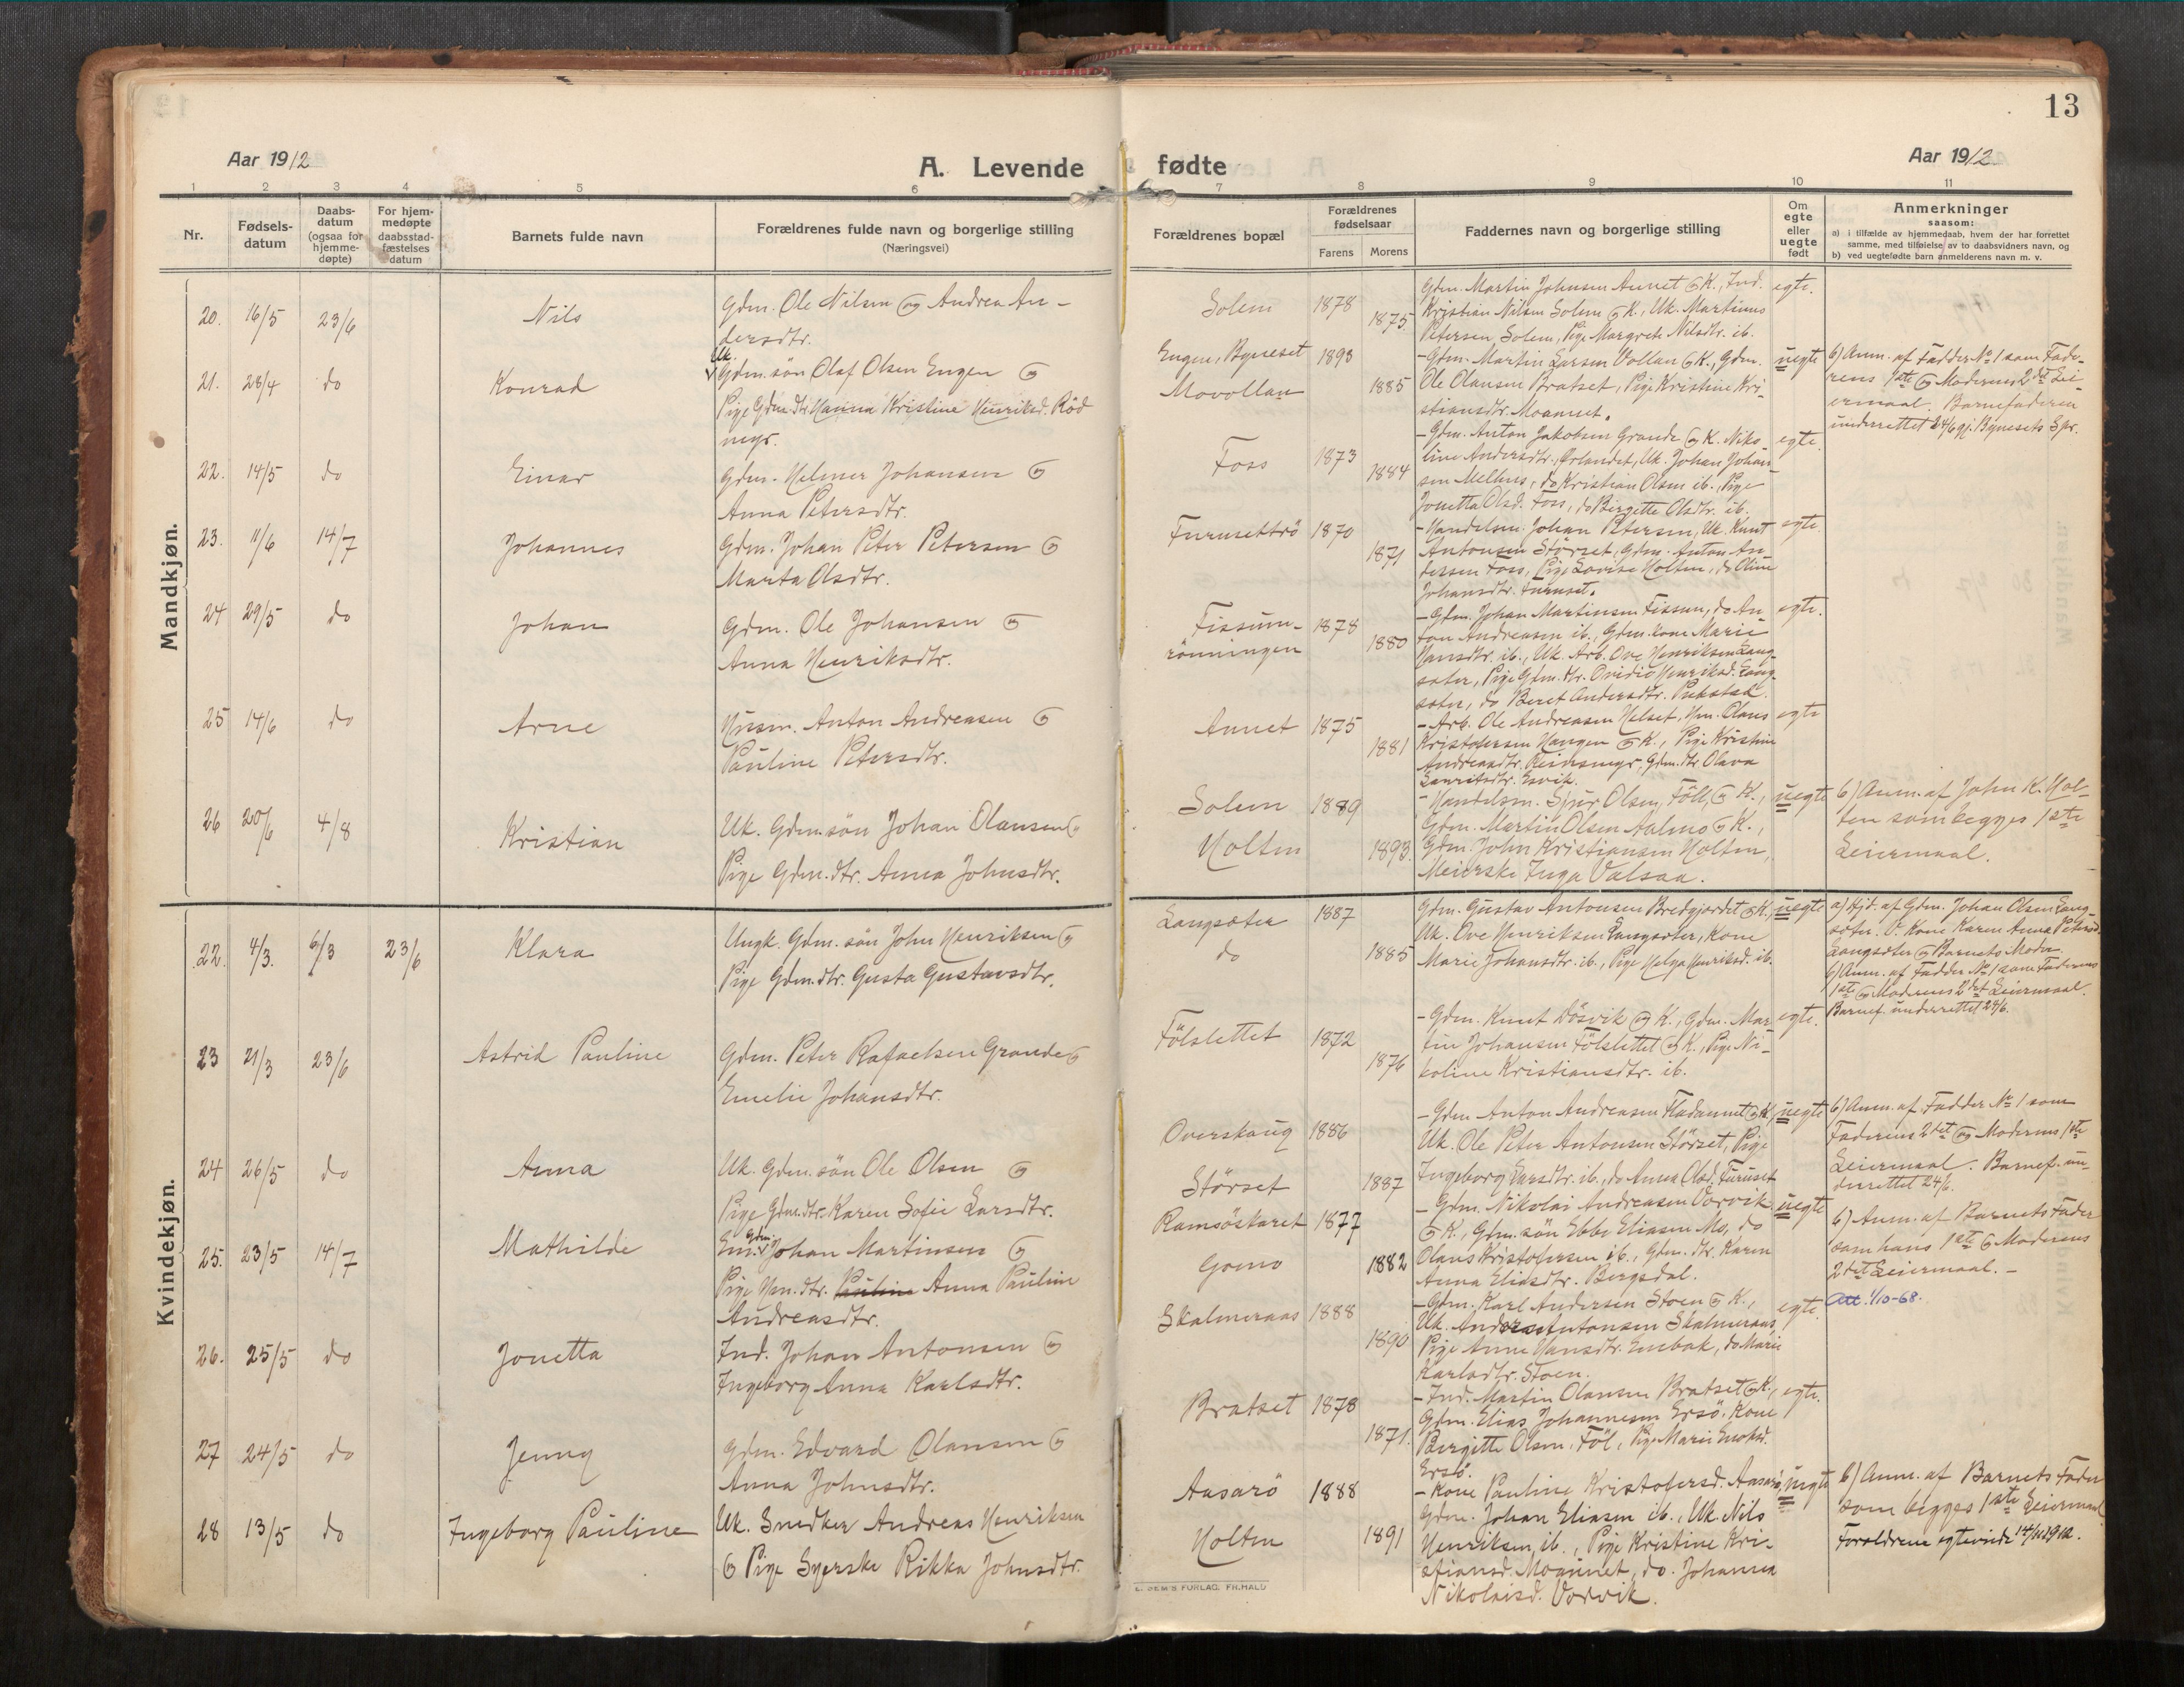 13
Aar 1912
A. Levende fødte
Aar 1912
1 2 3 4 5 6 7 8 9 10 11
Nr.
Fødsels-
datum
Daabs-
datum
(ogsaa for
hjemme-
døpte)
For hjem-
medøpte
daabsstad-
fæstelses
datum
Barnets fulde navn
Forældrenes fulde navn og borgerlige stilling
(Næringsvei)
Forældrenes bopæl
Forældrenes
fødselsaar
Farens Morens
Faddernes navn og borgerlige stilling
Om
egte
eller
uegte
født
Anmerkninger
saasom:
a) i tilfælde av hjemmedaab, hvem der har forrettet
samme, med tilføielse av to daabsvidners navn, og
b) ved uegtefødte barn anmelderens navn m. v.
Mandkjøn.
20. 16/5 23/6 Nils
Gdm. Ole Nilsen og Andrea An-
dersdtr.
Solem 1878 1875
Gdm. Martin Johnsen Aunet og K., Ind.
Kristian Nilsen Solem og K., Uk. Martinus
Petersen Solem, Pige Margrete Nilsdtr. ib.
egte.
21. 28/4 do Konrad
Uk.
Gdm. søn Olaf Olsen Engen og
Pige Gdm. dtr. Hanna Kristine Henriksd. Rød
myr.
Engen, Byneset 1893
Movollan 1885
- Gdm. Martin Larsen Vollan og K., Gdm.
Ole Olausen Bratset, Pige Kristine Kri-
stiansdtr. Moaunet.
uegte
b) Anm. af Fadder No 1 som Fade-
rens 1ste og Moderens 2det Lei-
ermaal. Barnefaderen
underrettet 24/6 gj. Bynesets Spr.
22. 14/5 do Einar
Gdm. Helmer Johansen og
Anna Petersdtr.
Foss 1873 1884
- Gdm. Anton Jakobsen Grande og K. Niko
line Andersdtr., Ørlandet, Uk. Johan Johan-
sen Melhus, do Kristian Olsen ib., Pige
Jonetta Olsd. Foss, do Birgitte Olsdtr. ib.
egte
23. 11/6 14/7 Johannes
Gdm. Johan Peter Petersen og
Marta Olsdtr.
Furusettrø 1870 1871
- Handelsm. Johan Petersen, Uk. Knut
Antonsen Størset, Gdm. Anton An-
dersen Foss, Pige Lovise Holten, do Oline
Johansdtr. Furuset.
egte
24 29/5 do Johan
Gdm. Ole Johansen og
Anna Henriksdtr.
Fissum-
rønningen 1878 1880
- Gdm. Johan Martinsen Fissum, do An-
ton Andreasen ib., Gdm. kone Marie
Hansdtr. ib., Uk. Arb. Ove Henriksen Lang-
sæter, Pige Gdm. dtr. Ovidie Henriksd. Lang-
sæter, do Beret Andersdtr.
egte.
25 14/6 do Arne
Husm. Anton Andreasen og
Pauline Petersdtr.
Aunet 1875 1881
- Arb. Ole Andreasen Helset, Hm. Olaus
Kristofersen Haugen og K., Pige Kristine
Andreasdtr. Reinsmyr, Gdm. dtr. Olava
Lauritsdtr.
egte
26 20/6 4/8 Kristian
Uk. Gdm. søn Johan Olausen og
Pige Gdm. dtr. Anna Johnsdtr.
Solem 1889
Holten 1893.
- Handelsm. Sjur Olsen, Føll, og K.,
Gdm. Martin Olsen Aalmo og K.,
Gdm. John Kristiansen Holten,
Meierske Inga Valsaa.
uegte
b) Anm. af John K. Hol-
ten som begges 1ste
Leiermaal.
Kvindekjøn.
22. 4/3. 6/3 23/6 Klara
Ungk. Gdm. søn John Henriksen og
Pige Gdm. dtr. Gusta Gustavsdtr.
Langsæter 1887
do 1885
Gdm. Gustav Antonsen Bredgjordet og K.,
Uk. Ove Henriksen Langsæter, Kone
Marie Johansdtr. ib., Pige Helga Henriksd. ib.
uegte
a) Hjd. af Gdm. Johan Olsen Lang-
sæter. V. Kone Karen Anna Petersd.
Langsæter og Barnets Moder.
b) Anm. af Fadder No 1 som Faderens
1ste og Moderens 2det Leiermaal.
Barnef. underrettet 24/6.
23 21/3 23/6 Astrid Pauline
Gdm. Peter Rafaelsen Grande og
Emelie Johansdtr.
Følslettet 1872 1876
- Gdm. Knut Døsvik og K., Gdm. Mar-
tin Johansen Følslettet og K., Pige Ni-
koline Kristiansdtr. ib.
egte.
24 26/5 do Anna
Uk. Gdm. søn Ole Olsen og
Pige Gdm. dtr. Karen Sofie Larsdtr.
Overskaug 1886
Størset 1887
- Gdm Anton Andreasen Fladaunet og K.,
Uk. Ole Peter Antonsen Størset, Pige
Ingeborg Larsdtr. ib., do Anna Olsd. Furuset
uegte
b) Anm. af Fadder No 1 som
Faderens 2det og Moderens 1ste
Leiermaal. Barnef. un-
derrettet 24/6.
25. 23/5 14/7 Mathilde
Em. Gdm. Johan Martinsen og
Pige Hm. dtr. Pauline Anna Pauline
Andreasdtr.
Ramsøskaret 1877
Gomo 1882
- Gdm. Nikolai Andreasen Vorvik
og K., Gdm. søn Ebbe Eliasen Mo, do
Olaus Kristofersen ib., Gdm. dtr. Karen
Anna Eliasdtr. Bergsdal.
uegte
b) Anm. af Barnets Fader
som hans 1ste og Moderens
2det Leiermaal. -
Att. 1/10-68.
26. 25/5 do Jonetta
Ind. Johan Antonsen og
Ingeborg Anna Karlsdtr.
Skalmeraas 1888 1890
- Gdm. Karl Andersen Stoen og K.,
Uk. Anders Antonsen Skalmeraas,
Pige Anne Hansdtr. do Marie
Karlsdtr. Stoen.
egte.
27 24/5 do Jenny
Gdm. Edvard Olausen og
Anna Johnsdtr.
Bratset 1878 1871.
- Ind. Martin Olausen Bratset og K.,
Gdm. Elias Johannesen Ersø, Kone
Birgitte Olsen, Føl, Pige Marie
Ersø.
egte.
28 13/5 do Ingeborg Pauline
Uk. Snedker Andreas Henriksen
og Pige Syerske Rikka Johnsdtr.
Aasarø 1888
Holten 1891
- Kone Pauline Kristofersd. Aasarø,
Gdm. Johan Eliasen ib., Uk. Nils
Henriksen, ib., Pige Kristine Kri-
stiansd. Moaunet, do. Johanna
Nikolaisd. Vorvik.
uegte
b) Anm. af Barnets Fader
som begges 1ste Leiermaal
Forældrene egteviede 14/11 1912.
E. SEM'S FORLAG, FR.HALD